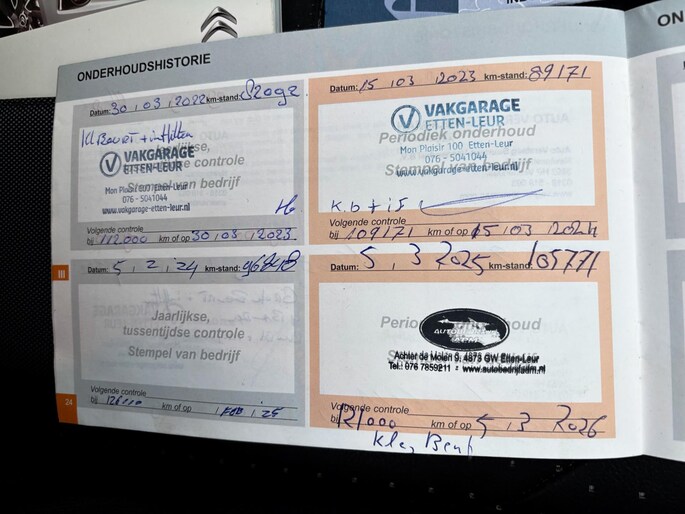 ONDERHOUDSHISTORIE
ON
Datum: 30 03 2022 km-stand:
VAKGARAGE
ETTEN-LEUR
Jaarlijkse,
tussentijdse controle
Stempel van bedrijf
076 - 5041044
www.vakgarage-etten-leur.nl
Volgende controle
bij 112.000 km of op 30 03 2023
Datum: 15 03 2023 km-stand: 89171
VAKGARAGE
ETTEN-LEUR
Periodiek onderhoud
Mon Plaisir 100 Etten-Leur
076 - 5041044
www.vakgarage-etten-leur.nl
Stempel van bedrijf
K.b + i F
Volgende controle
bij 109171 km of op 15 03 2024
III
Datum: 5 2 24 km-stand: 96848
Jaarlijkse,
tussentijdse controle
Stempel van bedrijf
Volgende controle
bij km of op
24
Datum: 5 3 2025 km-stand: 105771
Achter de Molen 9, 4873 GW Etten-Leur
Tel.: 076 7859211 - www.autobedrijfadm.nl
Volgende controle
bij 121000 km of op 5 3 2026